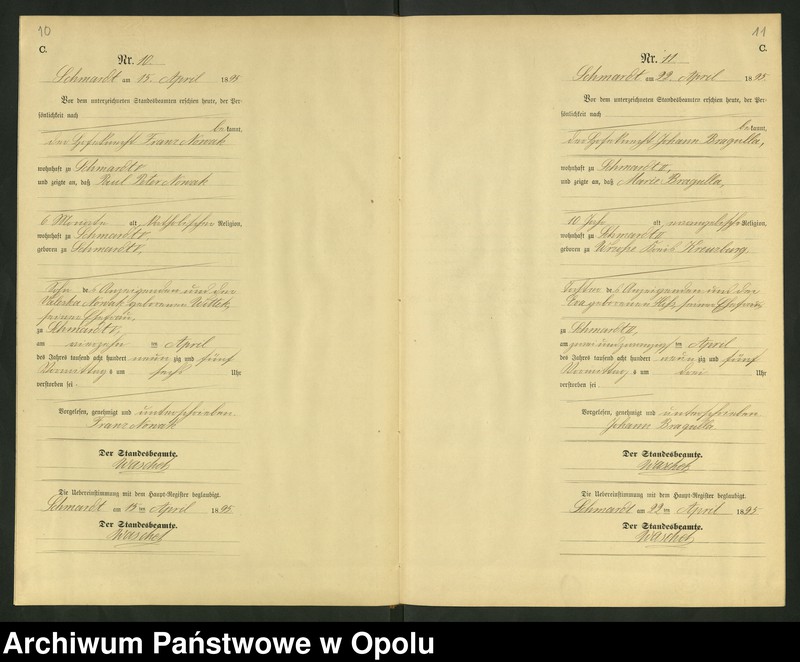 10
C.
Nr. 10.
Schmardt am 15. April 1895
Vor dem unterzeichneten Standesbeamten erschien heute, der Per-
sönlichkeit nach
bekannt,
der Franz Nowak
wohnhaft zu Schmardt
und zeigte an, daß Paul Peter Nowak
6 Monate alt katholischer Religion,
wohnhaft zu Schmardt
geboren zu Schmardt
Sohn des Anzeigenden und der
Valeska Nowak geborenen Willek,
seiner Ehefrau,
zu Schmardt
am vierzehn ten April
des Jahres tausend acht hundert neun zig und fünf
Vormittags um sechs Uhr
verstorben sei.
Vorgelesen, genehmigt und unterschrieben
Franz Nowak
Der Standesbeamte.
Waschek
Die Uebereinstimmung mit dem Haupt-Register beglaubigt.
Schmardt am 15 ten April 1895
Der Standesbeamte.
Waschek
11
C.
Nr. 11.
Schmardt am 22. April 1895
Vor dem unterzeichneten Standesbeamten erschien heute, der Per-
sönlichkeit nach
bekannt,
der Johann Bragulla,
wohnhaft zu Schmardt II,
und zeigte an, daß Marie Bragulla,
10 Jahre alt evangelische Religion,
wohnhaft zu Schmardt II
geboren zu Kreis Kreuzburg
Tochter des Anzeigenden und der
Eva geborenen seiner Ehefrau
zu Schmardt II,
am zwei und zwanzig ten April
des Jahres tausend acht hundert neun zig und fünf
Vormittags um drei Uhr
verstorben sei.
Vorgelesen, genehmigt und unterschrieben
Johann Bragulla
Der Standesbeamte.
Waschek
Die Uebereinstimmung mit dem Haupt-Register beglaubigt.
Schmardt am 22 ten April 1895
Der Standesbeamte.
Waschek
Archiwum Państwowe w Opolu